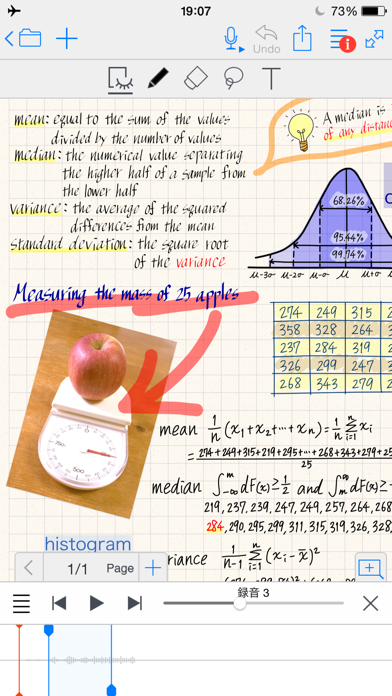 19:07
73%
Undo
T
mean: equal to the sum of the values
divided by the number of values
median: the numerical value separating
the higher half of a sample from
the lower half
variance: the average of the squared
differences from the mean
standard deviation: the square root
of the variance
A median is
of any distanc
68.26%
95.44%
99.74%
μ-3σ μ-2σ μ-σ μ μ+σ
Measuring the mass of 25 apples
274 249 315
358 328 264
237 284 319
326 299 247
268 343 279
mean 1/n (x₁+x₂+…+xₙ) = 1/n Σⁿᵢ₌₁ xᵢ
= 274+249+315+219+295+…+268+343+279+25
25
median ∫₋∞ᵐ dF(x) ≥ 1/2 and ∫ₘ∞ dF(x) ≥
219, 237, 239, 247, 249, 257, 264, 268
284, 290, 295, 299, 311, 315, 319, 326, 328,
histogram
riance 1/n-1 Σⁿᵢ₌₁ (xᵢ - x̄)²
1/1 Page
録音 3